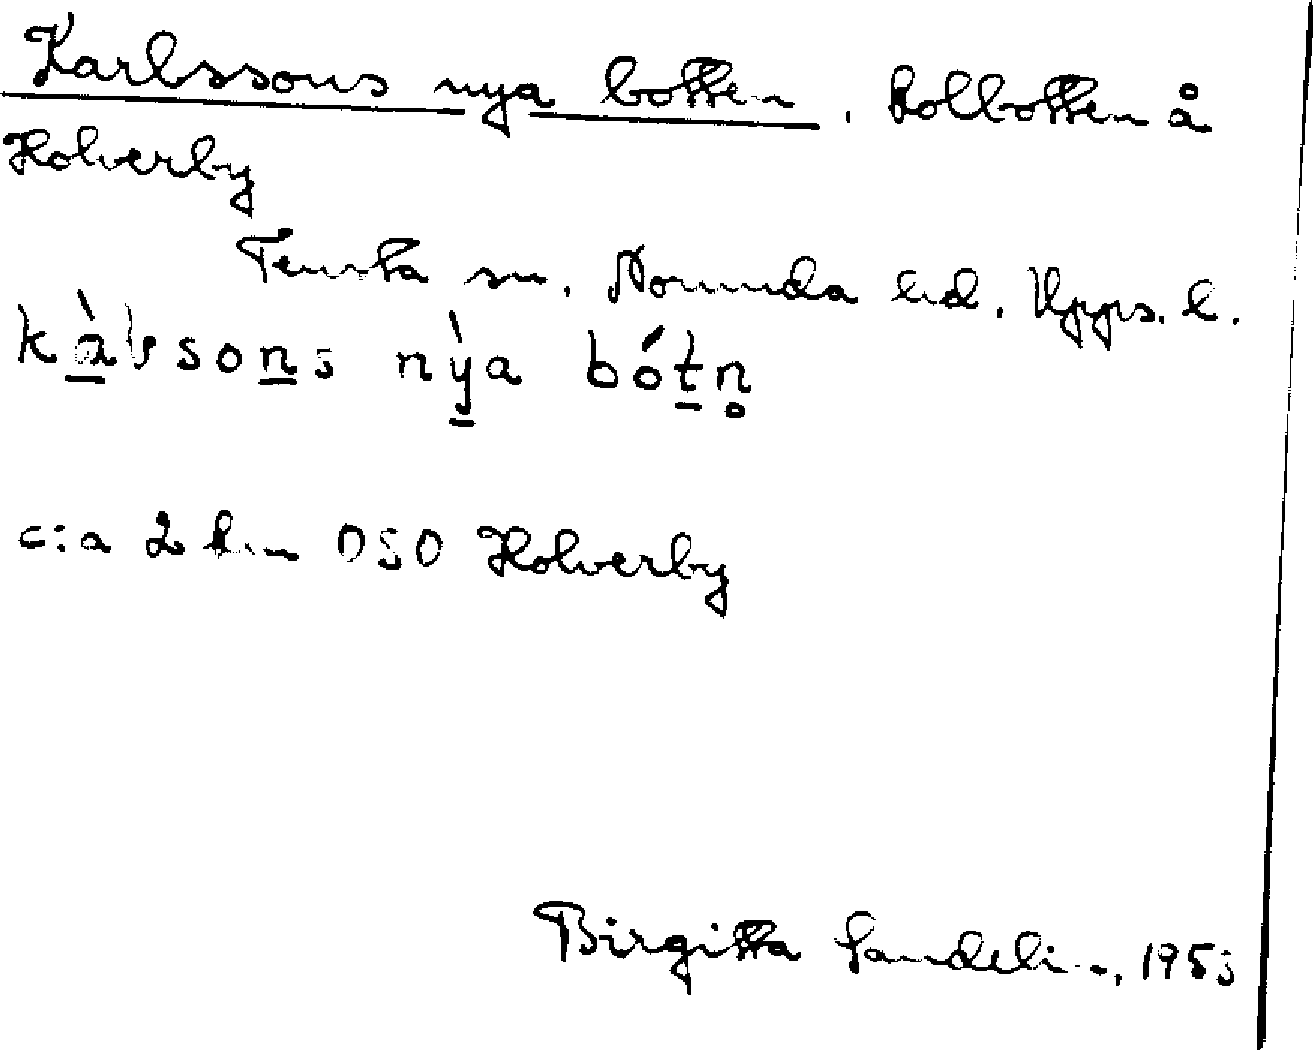 Karlssons nya botten. Kolbotten å
Holverby
Tensta sn. Norunda hd. Upps. l.
nỳa bótn̥
c:a 2 km OSO Holverby
Birgitta Sandelin, 1953